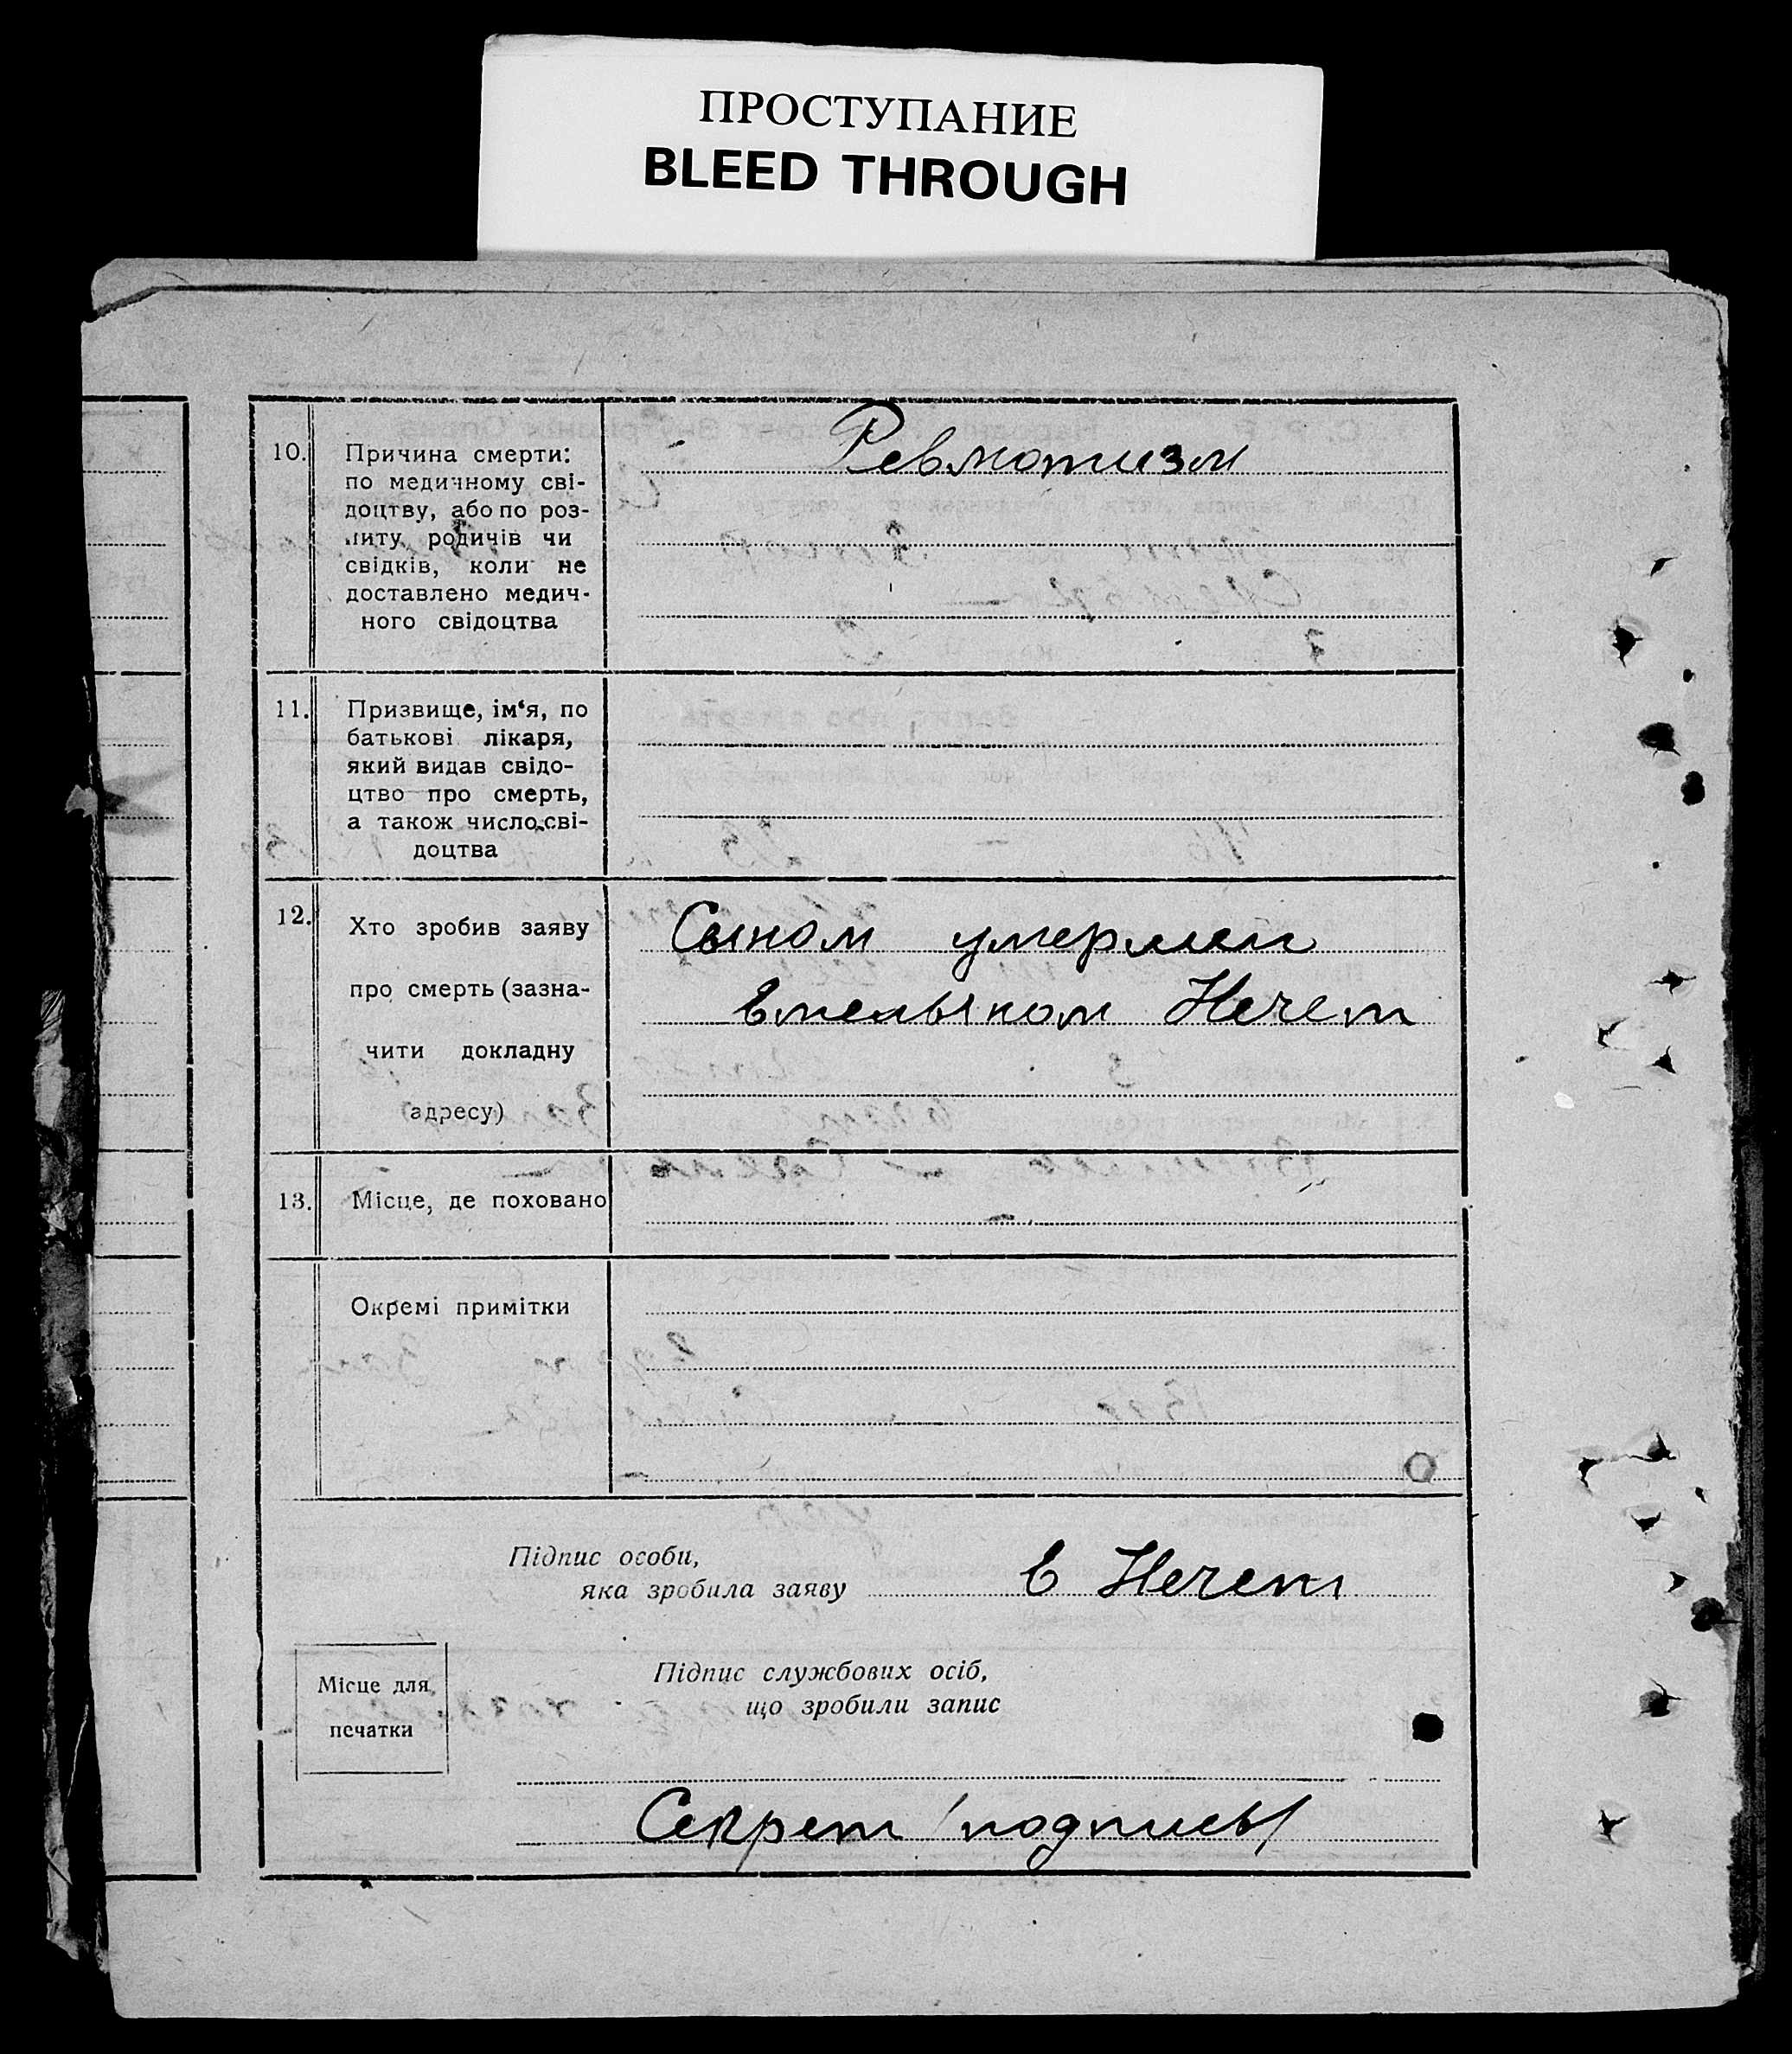 ПРОСТУПАНИЕ
BLEED THROUGH
10. Причина смерти: Ревматизм
по медичному сві-
доцтву, або по роз-
питу родичів чи
свідків, коли не
доставлено медич-
ного свідоцтва
11. Призвище, ім‘я, по
батькові лікаря,
який видав свідо-
цтво про смерть,
а також число сві-
доцтва
12. Хто зробив заяву Сыном умершей
про смерть (зазна- Емельяном Нечет
чити докладну
адресу)
13. Місце, де поховано
Окремі примітки
Підпис особи,
яка зробила заяву Е Нечет
Місце для
печатки
Підпис службових осіб,
що зробили запис
Секрет /подпись/